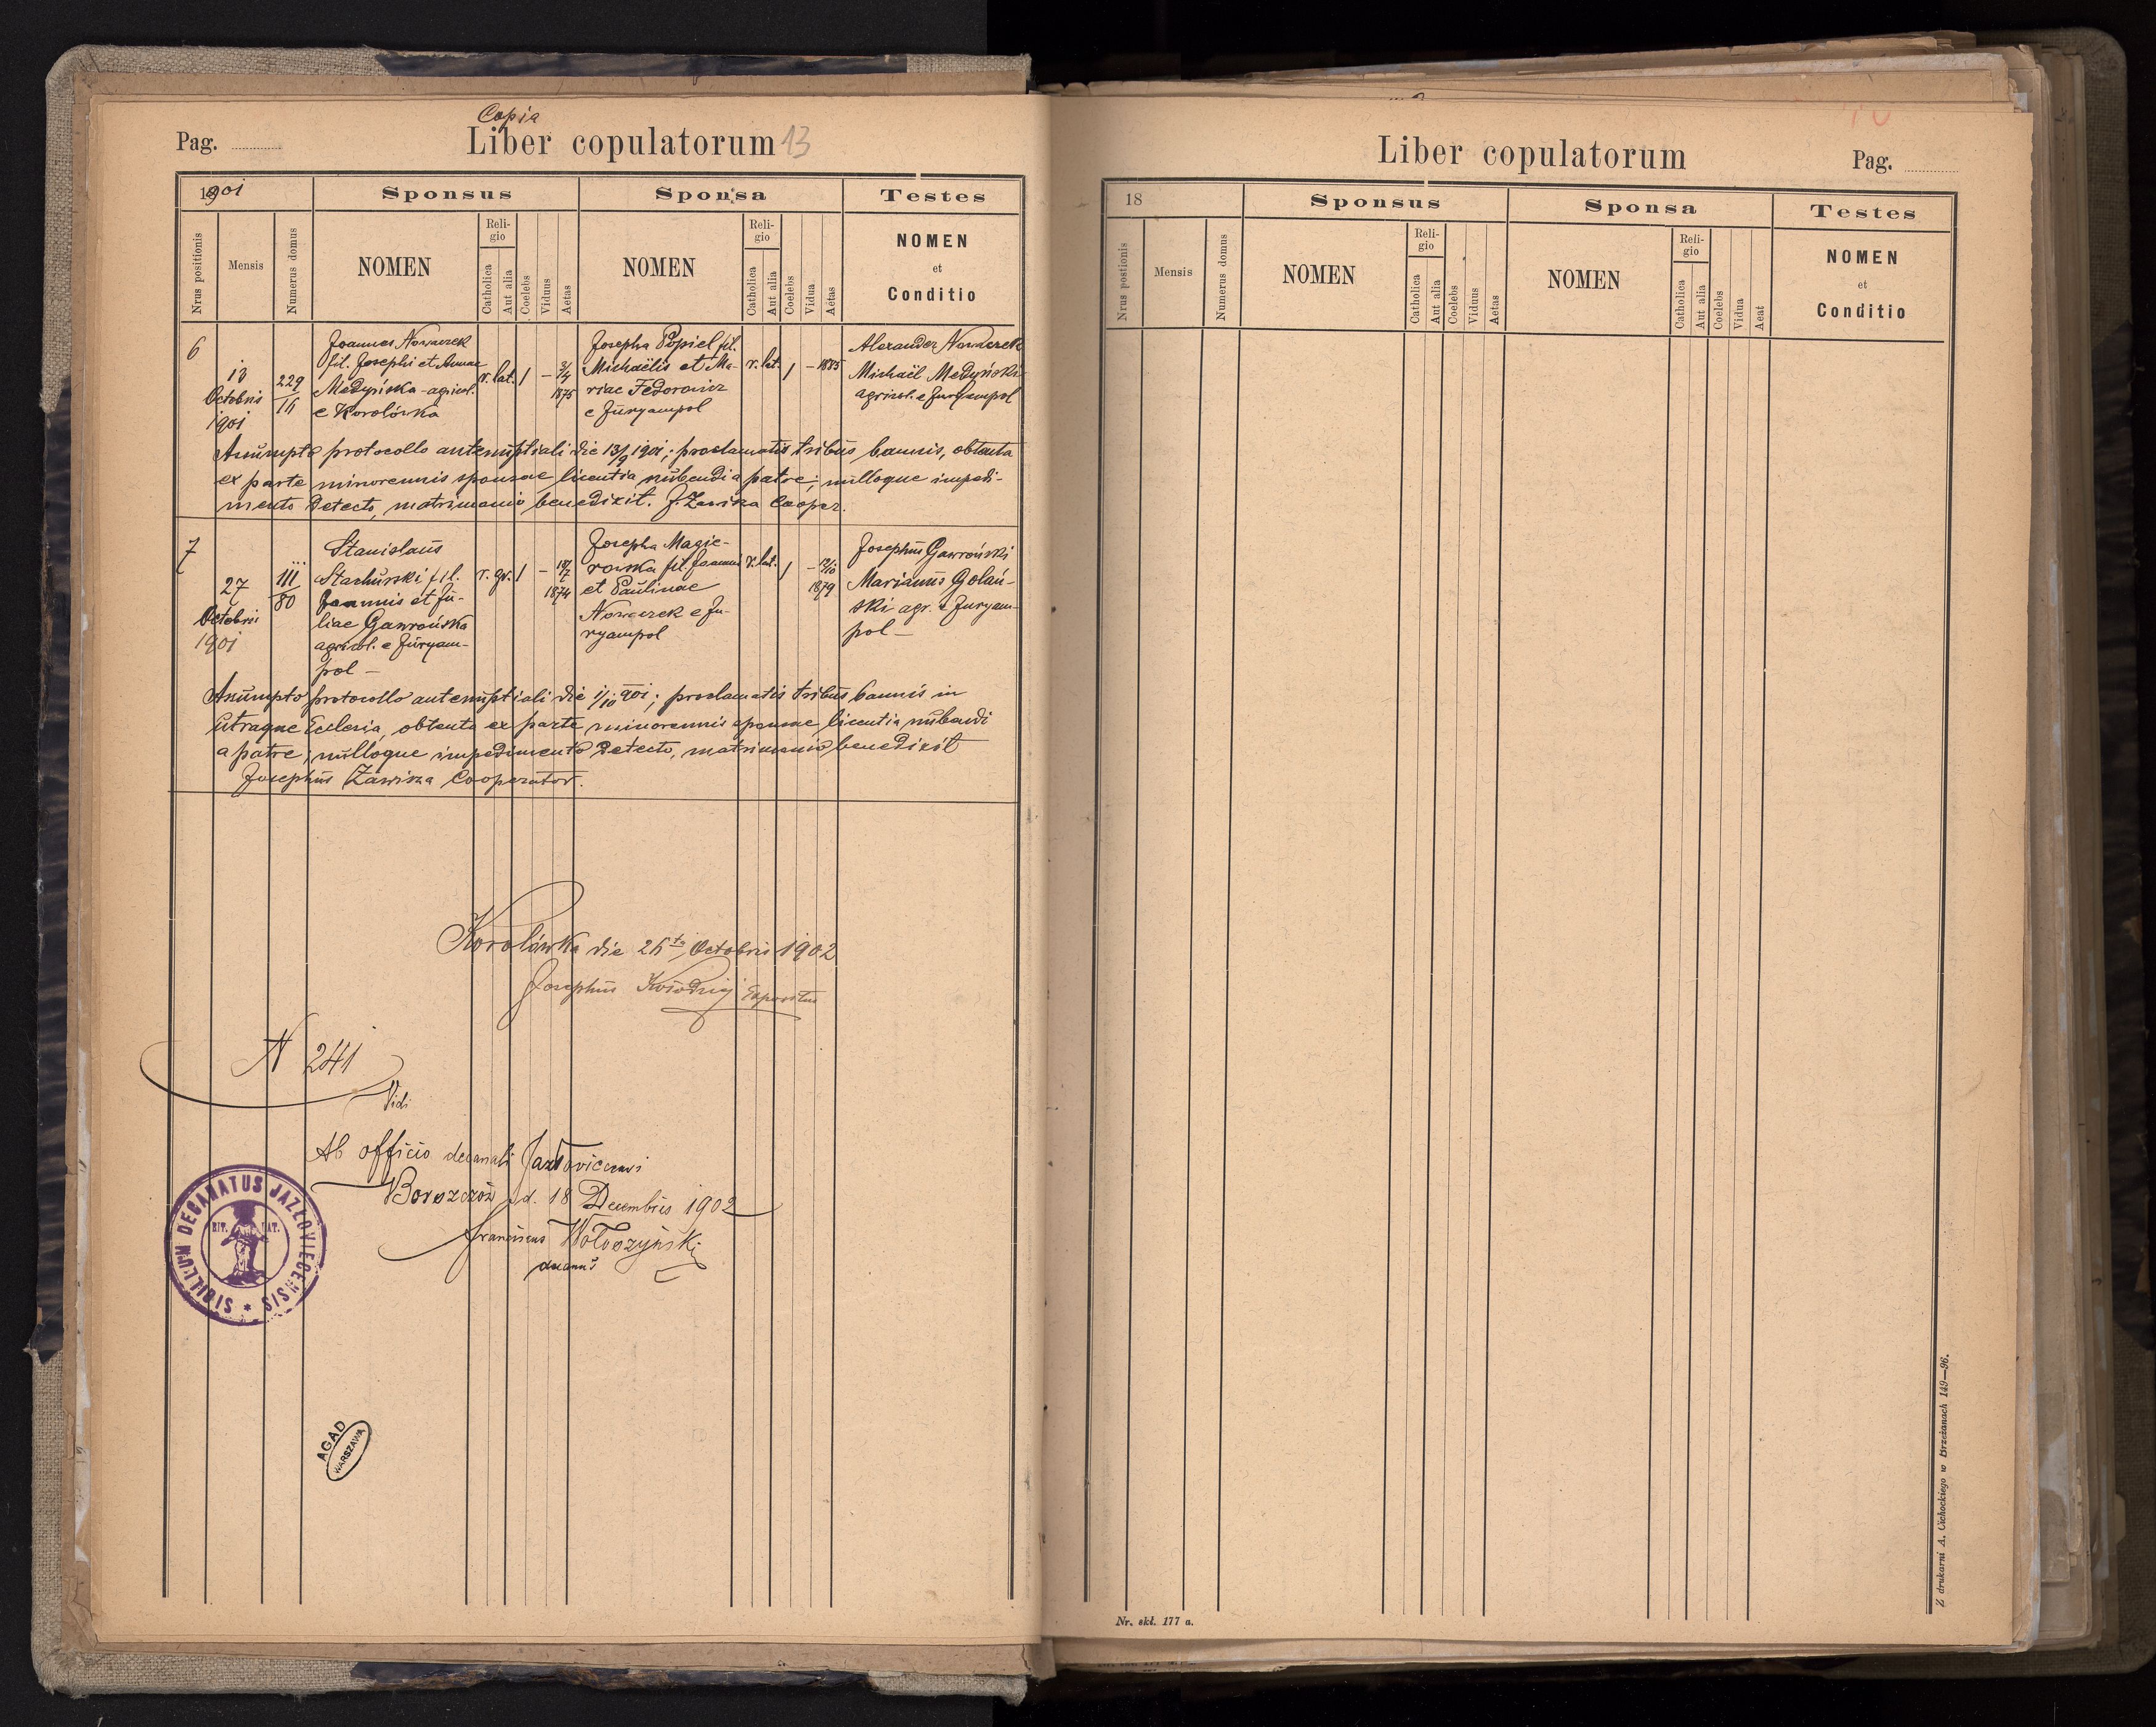 Copia
Pag.
Liber copulatorum 13
1901
Sponsus
Sponsa
Testes
Nrus positionis
Mensis
Numerus domus
NOMEN
Religio
Catholica
Aut alia
Coelebs
Viduus
Aetas
NOMEN
Religio
Catholica
Aut alia
Coelebs
Vidua
Aetas
NOMEN
et
Conditio
6
13
Octobris
1901
229
16
Joannes Nowaczek
fil. Josephi et Annae
Medyńska - agricol.
e Korolówka
r. lat. 1 -
3/4
1875
Josepha Popiel fil.
Michaëlis et Ma-
riae Fedorowicz
e Juryampol
r. lat. 1 - 1885
Alexander Nowaczek
Michaël Medyński
agricol. e Juryampol
Assumpto protocollo antenuptiali die 13/9 1901; proclamatis tribus bannis, obtenta
ex parte minorennis sponsae licentia nubendi a patre; nulloque impedi-
mento detecto, matrimonio benedixit. J. Zawisza Cooper.
7
27
Octobris
1901
111
80
Stanislaus
Stachurski fil.
Joannis et Ju-
liae Gawrońska
agricol. e Juryam-
pol -
r. gr. 1 -
1874
Josepha Magie-
rowska fil. Joannis
et Paulinae
Nowaczek e Ju-
ryampol
r. lat. 1 -
1879
Josephus Gawroński
Marianus Golań-
ski agr. e Juryam-
pol -
Assumpto protocollo antenuptiali die 1/10 901; proclamatis tribus bannis in
utraque Ecclesia, obtenta ex parte minorennis sponsae licentia nubendi
a patre; nulloque impedimento detecto, matrimonio benedixit
Josephus Zawisza Cooperator.
Korolówka die 26ta Octobris 1902
Josephus Expositus
N 241
Vidi
Ab officio decanali
Borszczów d. 18 Decembris 1902
Franciscus Wołoszyński
decanus
SIGILLUM DECANATUS JAZŁOVIECENSIS
RIT. LAT.
AGAD
WARSZAWA
Liber copulatorum
Pag.
18
Sponsus
Sponsa
Testes
Nrus postionis
Mensis
Numerus domus
NOMEN
Religio
Catholica
Aut alia
Coelebs
Viduus
Aetas
NOMEN
Religio
Catholica
Aut alia
Coelebs
Vidua
Aeat
NOMEN
et
Conditio
Nr. skł. 177 a.
Z drukarni A. Cichockiego w Brzeżanach 149—96.